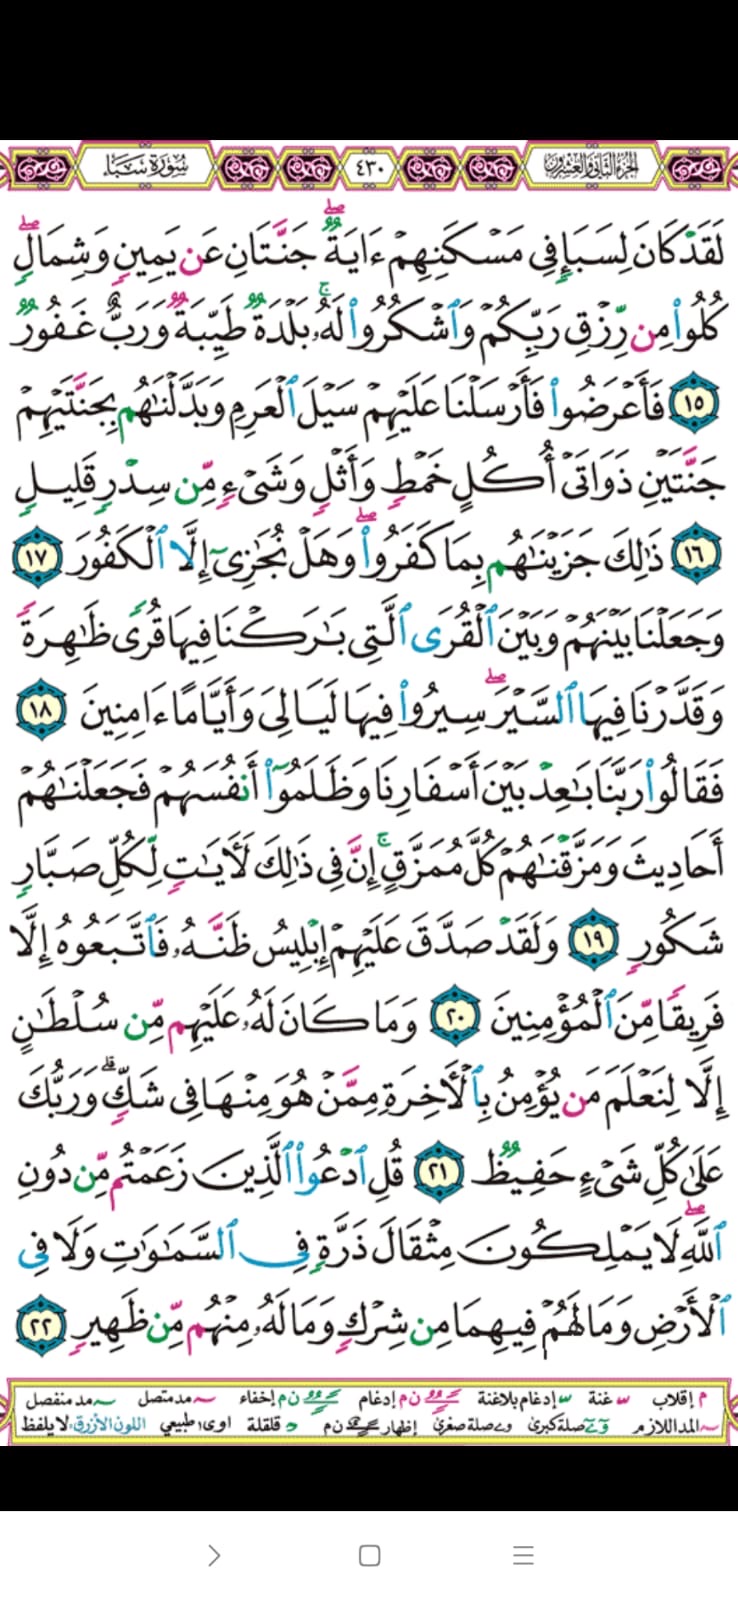 الجزء الثاني والعشرون ٤٣٠ سُورَةُ سَبَإٍ
لَقَدۡ كَانَ لِسَبَإٖ فِي مَسۡكَنِهِمۡ ءَايَةٞۖ جَنَّتَانِ عَن يَمِينٖ وَشِمَالٖۖ
كُلُواْ مِن رِّزۡقِ رَبِّكُمۡ وَٱشۡكُرُواْ لَهُۥۚ بَلۡدَةٞ طَيِّبَةٞ وَرَبٌّ غَفُورٞ
١٥ فَأَعۡرَضُواْ فَأَرۡسَلۡنَا عَلَيۡهِمۡ سَيۡلَ ٱلۡعَرِمِ وَبَدَّلۡنَٰهُم بِجَنَّتَيۡهِمۡ
جَنَّتَيۡنِ ذَوَاتَيۡ أُكُلٍ خَمۡطٖ وَأَثۡلٖ وَشَيۡءٖ مِّن سِدۡرٖ قَلِيلٖ
١٦ ذَٰلِكَ جَزَيۡنَٰهُم بِمَا كَفَرُواْۖ وَهَلۡ نُجَٰزِيٓ إِلَّا ٱلۡكَفُورَ ١٧
وَجَعَلۡنَا بَيۡنَهُمۡ وَبَيۡنَ ٱلۡقُرَى ٱلَّتِي بَٰرَكۡنَا فِيهَا قُرٗى ظَٰهِرَةٗ
وَقَدَّرۡنَا فِيهَا ٱلسَّيۡرَۖ سِيرُواْ فِيهَا لَيَالِيَ وَأَيَّامًا ءَامِنِينَ ١٨
فَقَالُواْ رَبَّنَا بَٰعِدۡ بَيۡنَ أَسۡفَارِنَا وَظَلَمُوٓاْ أَنفُسَهُمۡ فَجَعَلۡنَٰهُمۡ
أَحَادِيثَ وَمَزَّقۡنَٰهُمۡ كُلَّ مُمَزَّقٍۚ إِنَّ فِي ذَٰلِكَ لَأٓيَٰتٖ لِّكُلِّ صَبَّارٖ
شَكُورٖ ١٩ وَلَقَدۡ صَدَّقَ عَلَيۡهِمۡ إِبۡلِيسُ ظَنَّهُۥ فَٱتَّبَعُوهُ إِلَّا
فَرِيقٗا مِّنَ ٱلۡمُؤۡمِنِينَ ٢٠ وَمَا كَانَ لَهُۥ عَلَيۡهِم مِّن سُلۡطَٰنٍ
إِلَّا لِنَعۡلَمَ مَن يُؤۡمِنُ بِٱلۡأٓخِرَةِ مِمَّنۡ هُوَ مِنۡهَا فِي شَكّٖۗ وَرَبُّكَ
عَلَىٰ كُلِّ شَيۡءٍ حَفِيظٞ ٢١ قُلِ ٱدۡعُواْ ٱلَّذِينَ زَعَمۡتُم مِّن دُونِ
ٱللَّهِۖ لَا يَمۡلِكُونَ مِثۡقَالَ ذَرَّةٖ فِي ٱلسَّمَٰوَٰتِ وَلَا فِي
ٱلۡأَرۡضِ وَمَا لَهُمۡ فِيهِمَا مِن شِرۡكٖ وَمَا لَهُۥ مِنۡهُم مِّن ظَهِيرٖ ٢٢
م إقلاب غنة إدغام بلاغنة ن م إدغام ن م إخفاء مد متصل مد منفصل
المد اللازم صلة كبرى صلة صغرى إظهار ن م قلقلة اوى طبيعي اللون الأزرق: لا يلفظ